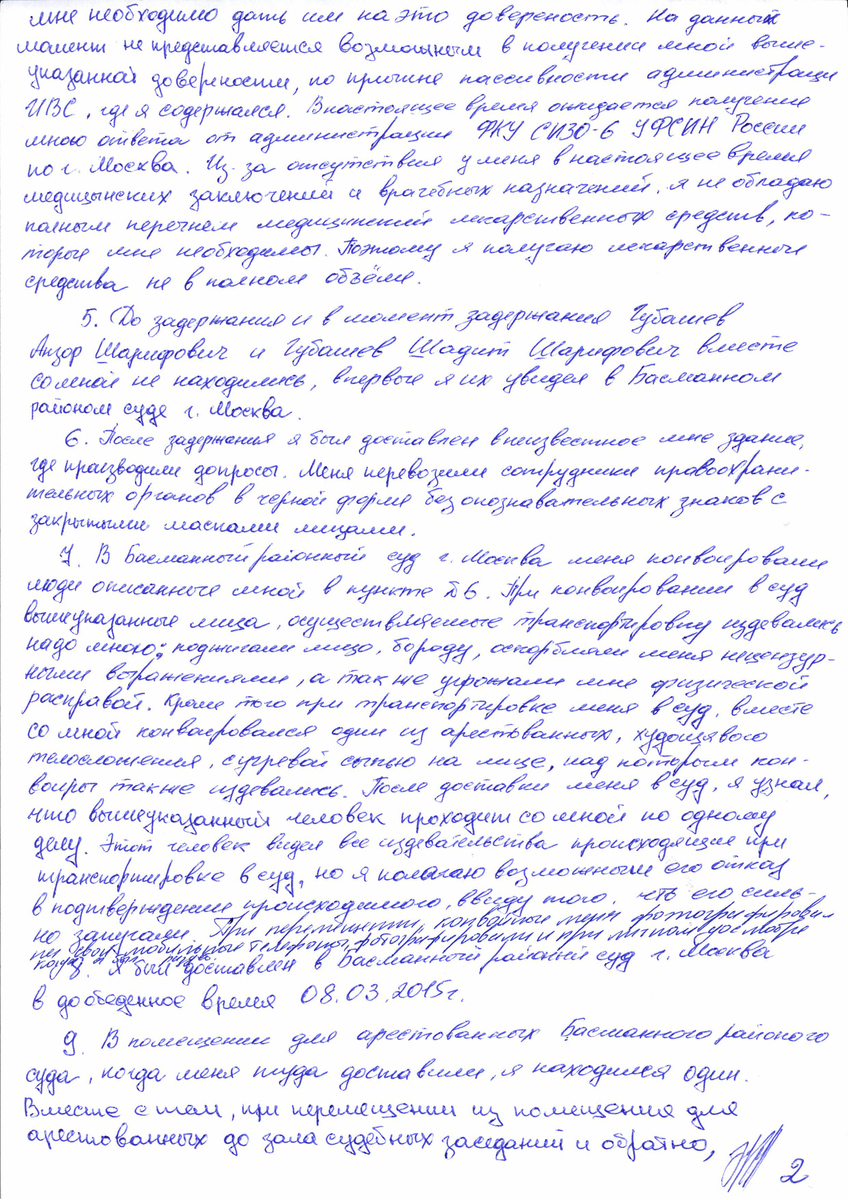 мне необходимо дать им на это довереность. На данных
момент не представляется возможным в получении мной выше-
указанной доверности, по причине пассивности администраци
ИВС, где я содержался. В настоящее время ожидается получение
мною ответа от администрации ФКУ СИЗО-6 УФСИН России
по г. Москва. Из-за отсутствия у меня в настоящее время
медицынских заключений и врачебных назначений, я не обладаю
полным перечнем медицинский лекарственных средств, ко-
торые мне необходимы. Поэтому я получаю лекарственные
средства не в полном объёме.
5. До задержания и в момент задержания Губашев
Анзор Шарифович и Губашев Шадит Шарифович вместе
со мной не находились, впервые я их увидел в Басманном
районом суде г. Москва.
6. После задержания я был доставлен в неизвестное мне здание,
где производили допросы. Меня перевозили сотрудники правоохрани-
тельных органов в черной форме без опознавательных знаков с
закрытыми масками лицами.
7. В Басманный районный суд г. Москва меня конвоировали
люди описанные мной в пункте №6. При конвоировании в суд
вышеуказанные лица, осуществляемые транспортировку издевались
надо мною: поджигали лицо, бороду, оскорбляли меня нецензур-
ными выражениями, а так же угрожали мне физической
расправой. Кроме того при транспортировке меня в суд, вместе
со мной конвоировался один из арестованных, худощявого
телосложения, с угревой сыпью на лице, над которым кон-
воиры также издевались. После доставки меня в суд, я узнал,
что вышеуказанный человек проходит со мной по одному
делу. Этот человек видел все издевательства происходящие при
транспортировке в суд, но я полагаю возможным его отказ
в подтверждении происходимого, ввиду того, что его силь-
но запугали. При перемещении, конвойные меня фотографировали
на свои мобильные телефоны, фотографировали и при личном досмотре
когда я был
8. Я был доставлен в Басманный районый суд г. Москва
в дообеденное время 08.03.2015г.
9. В помещении для арестованных Басманного районого
суда, когда меня туда доставили, я находился один.
Вместе с тем, при перемещении из помещения для
арестованных до зала судебных заседаний и обратно,
2